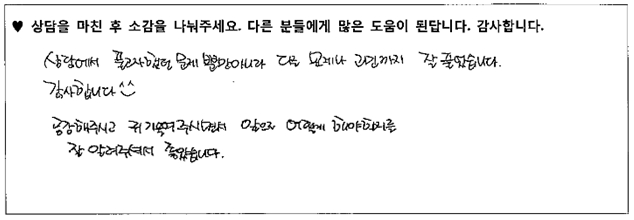 ♥ 상담을 마친 후 소감을 나눠주세요. 다른 분들에게 많은 도움이 된답니다. 감사합니다.
상담에서 풀고자했던 문제 뿐만아니라 다른 문제나 고민까지 잘 풀었습니다.
감사합니다 ^^
공감해주시고 귀 기울여주시면서 앞으로 어떻게 해야하는지를
잘 알려주셔서 좋았습니다.